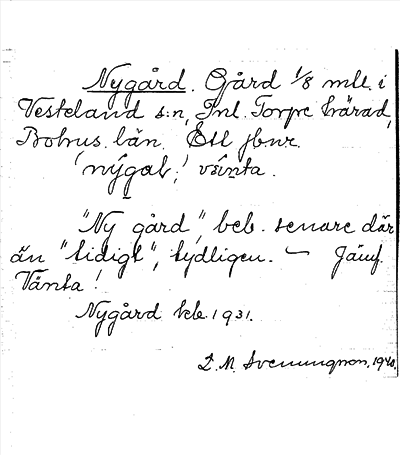 Nygård. Gård 1/8 mtl. i
Vesteland s:n, Inl. Torpe härad,
Bohus län. Ett jbnr.
'nýgaḷ! vsínta.
"Ny gård", beb. senare där
än "tidigt", tydligen. — Jämf.
Vänta!
Nygård kb. 1931.
L. M. Svenungsson, 1940.